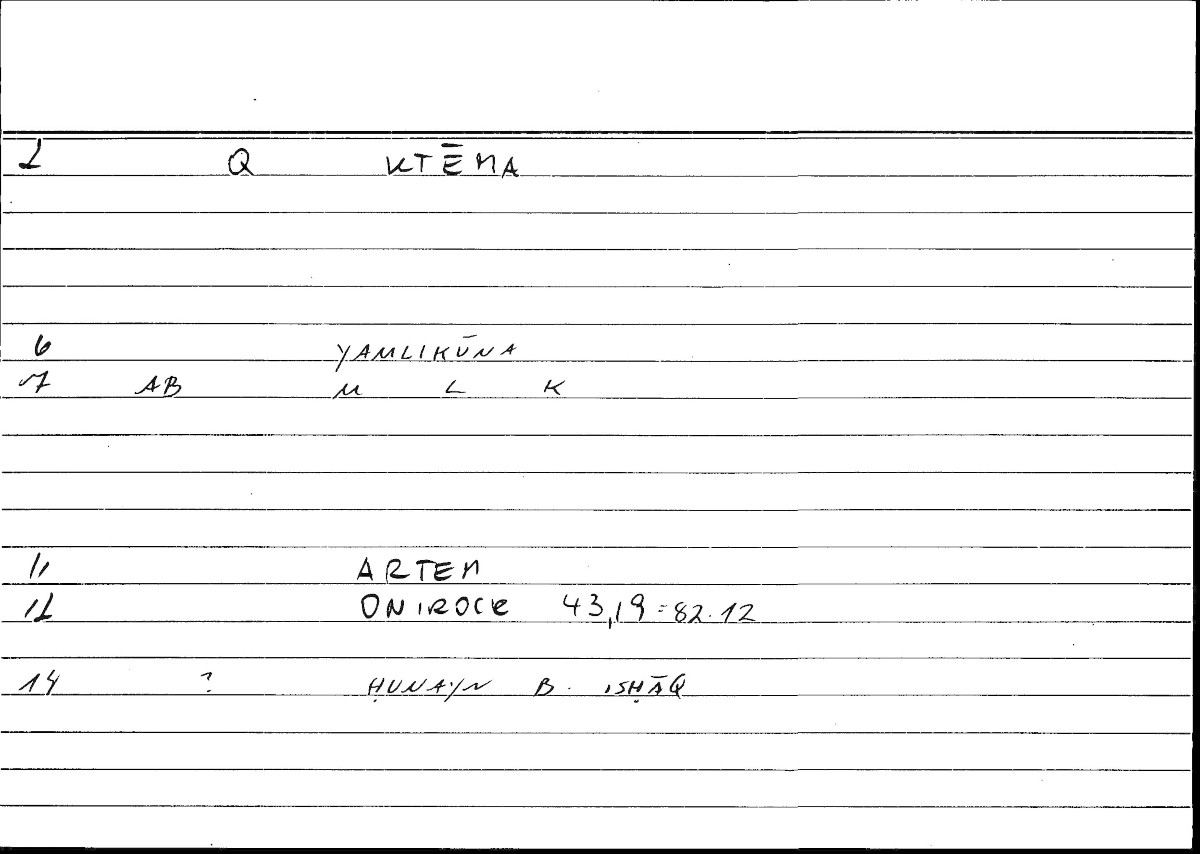 2 Q KTĒMA
6 YAMLIKŪNA
7 AB M L K
11 ARTEM
12 ONIROCR 43,19=82.12
14 ? ḤUNAYN B. ISḤĀQ